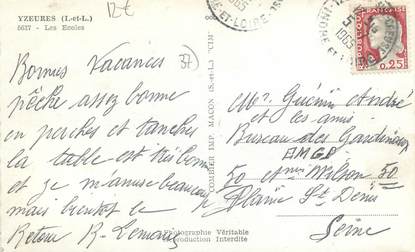 YZEURES (I.-et-L.)
6637 - Les Ecoles
12€
37
Bonnes Vacances
pêche assez bonne
en perches et tanches
la table est très bonne
et je m'amuse beaucoup
mais bientôt le
Retour R. Lemoine
COMBIER IMP. MACON (S.-et-L.) "CIM"
Photographie Véritable
Reproduction Interdite
1965
0,25
Mr. Guénin André
et les amis
Bureau des Gardiennes
50 Wilson 50
Plaine St Denis
Seine